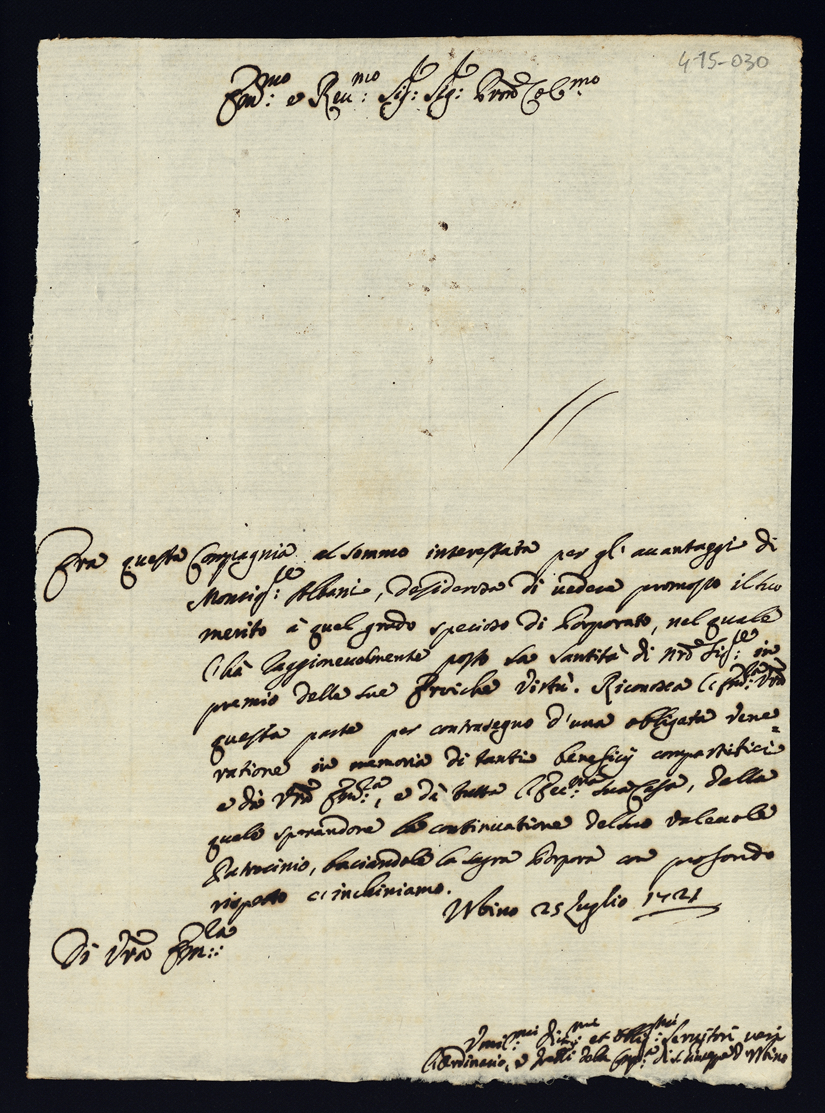 415-030
Em.mo e Reu.mo Sig: Sig: Pron Col.mo
Era questa Compagnia al sommo interessata per gl' auantaggi di
Monsig.re Albani, desiderosa di uedere promosso il suo
merito à quel grado specioso di Porporato, nel quale
l'hà raggioneuolmente posto la Santità di Nro Sig.re in
premio delle sue Eroiche Virtù. Riconosca l'Em.za Vra
questa parte per contrasegno d'una obligata Vene=
ratione in memoria di tanti beneficij compartitici
e da Vra Em.za, e da tutta l'Ecc.ma sua Casa, della
quale sperandone la continuatione del suo Valeuole
Patrocinio, baciandole la sagra Porpora con profondo
rispetto c'inchiniamo.
Urbino 25 Luglio 1721
Di Vra Em.za
Vmil.mi et Obli.mi Seruitori ueri
e Fratelli della Comp.a di S. Giuseppe d'Urbino